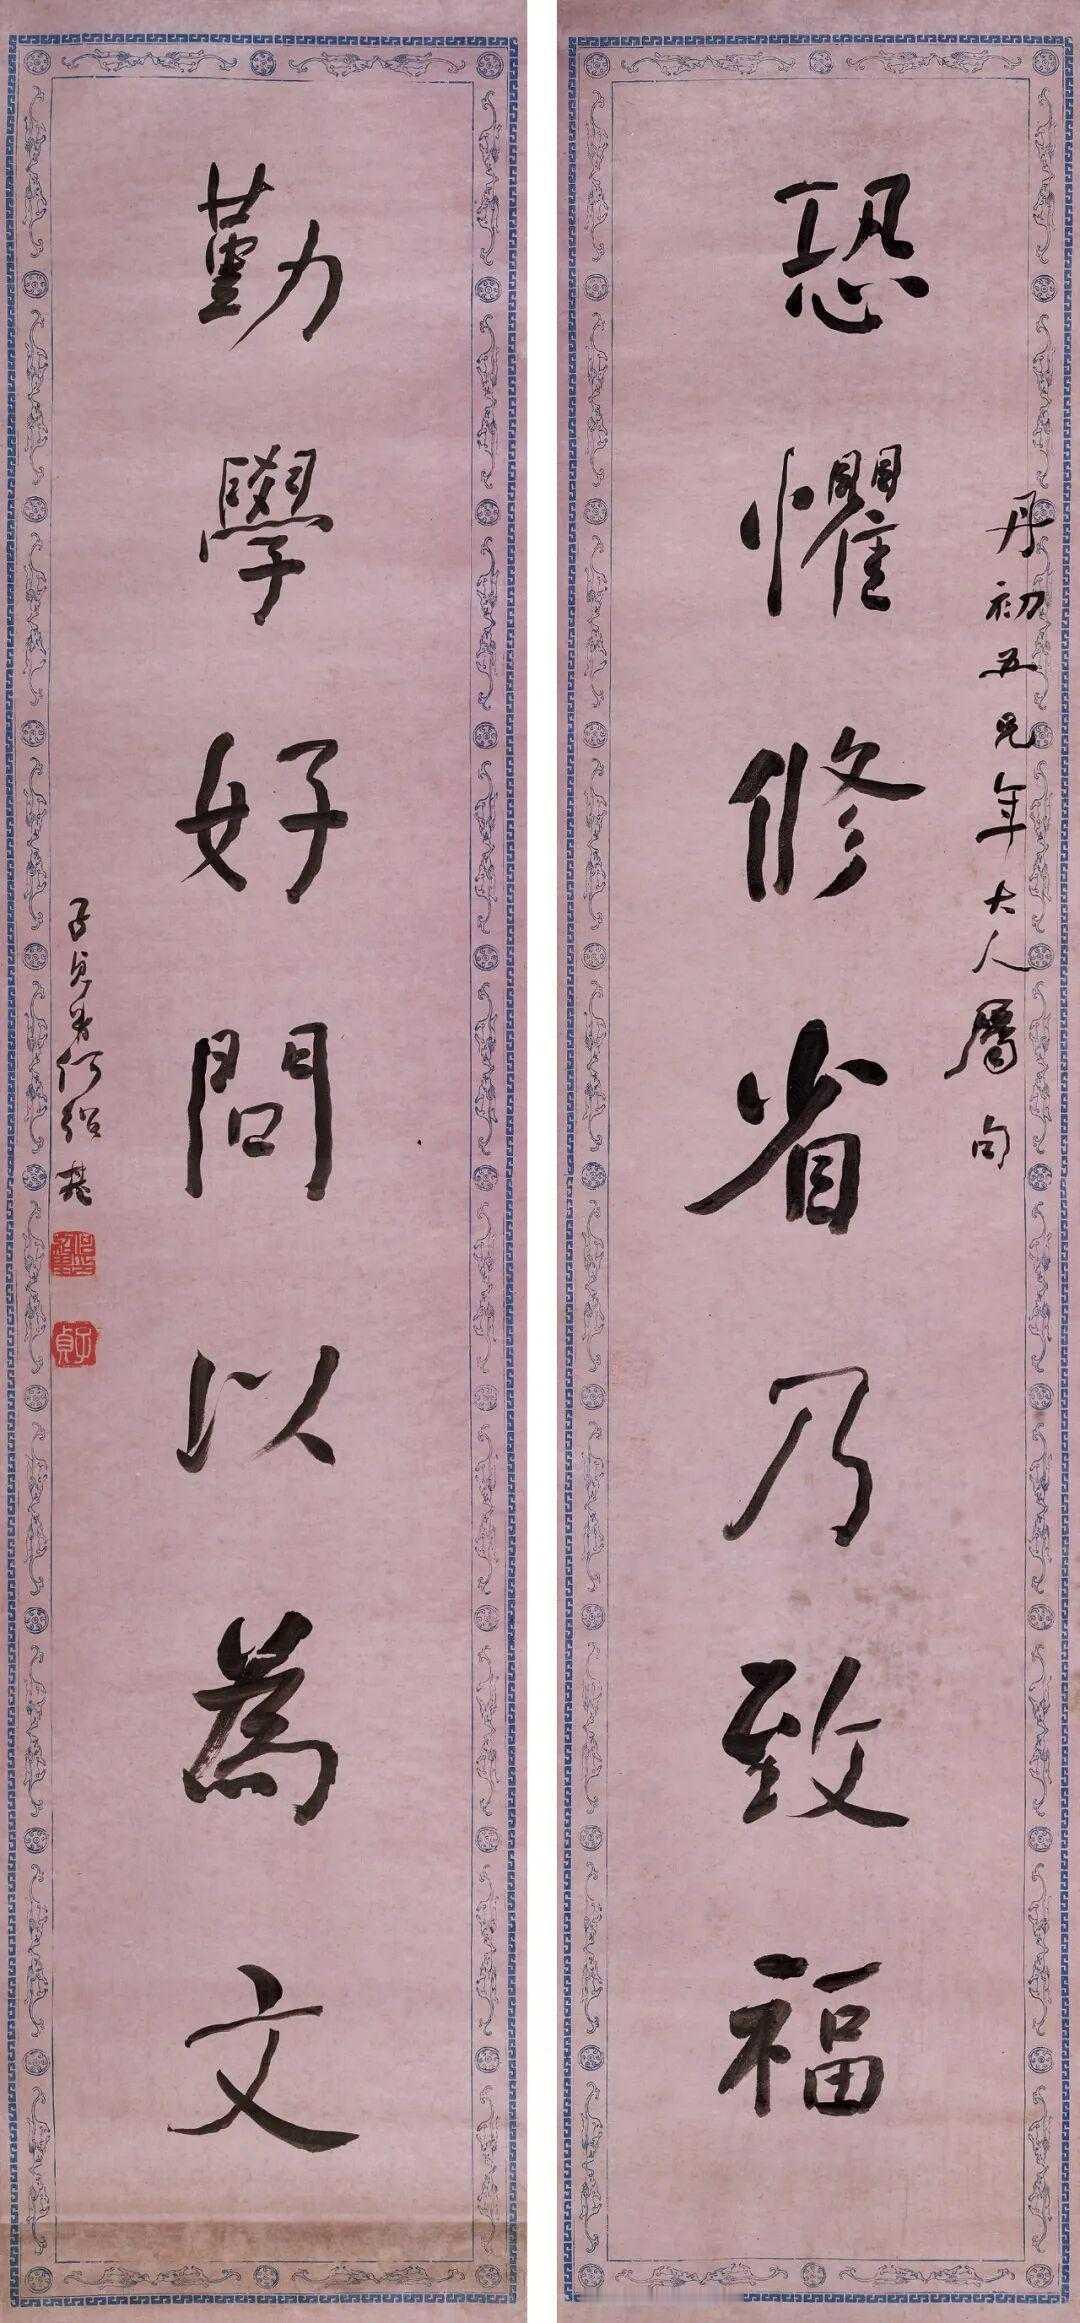 恐懼修省乃致福
丹初五兄年大人屬句
勤學好問以為文
子貞弟何紹基
子貞